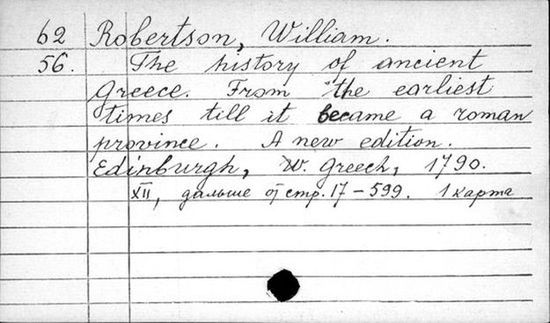 62 Robertson, William.
56. The history of ancient
greece. From the earliest
times till it became a roman
province. A new edition.
Edinburgh, W. Greech, 1790.
XII, дальше от стр. 17–599. 1 карта